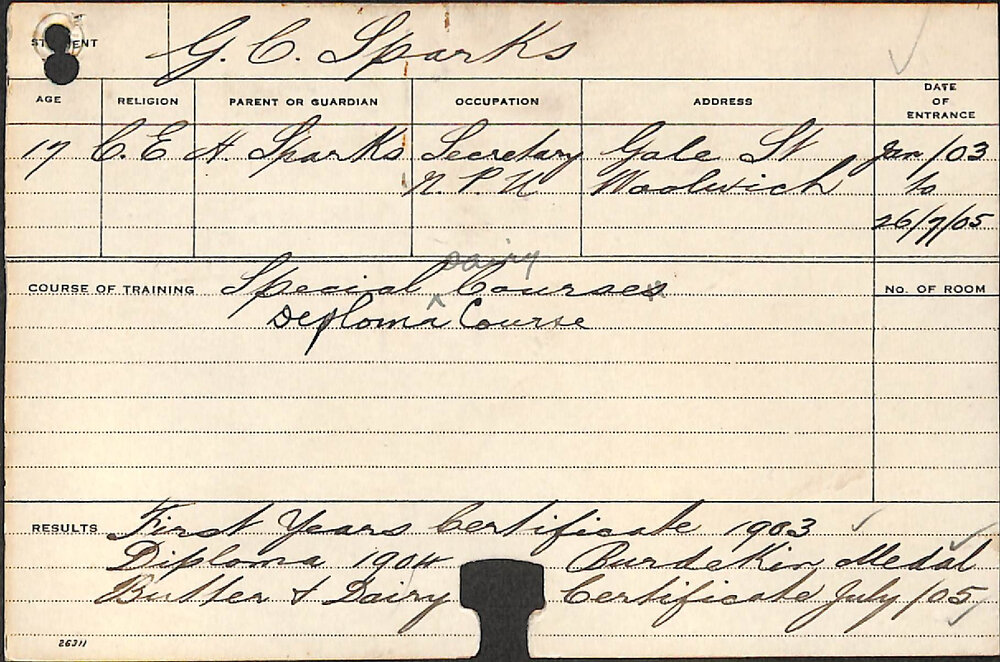 STUDENT G. C. Sparks
AGE RELIGION PARENT OR GUARDIAN OCCUPATION ADDRESS DATE OF ENTRANCE
17 C.E H. Sparks Secretary Gale St Jan/03
N. P. U Woolwich to
26/7/05
dairy
COURSE OF TRAINING Special ^ Courses No. OF ROOM
Diploma Course
RESULTS First Years Certificate 1903
Diploma 1904 Burdekin Medal
Butter & Dairy Certificate July/05
26311